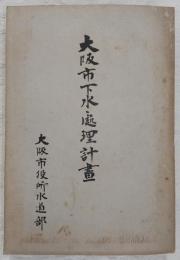 大阪市下水處理計畫
大阪市役所水道部